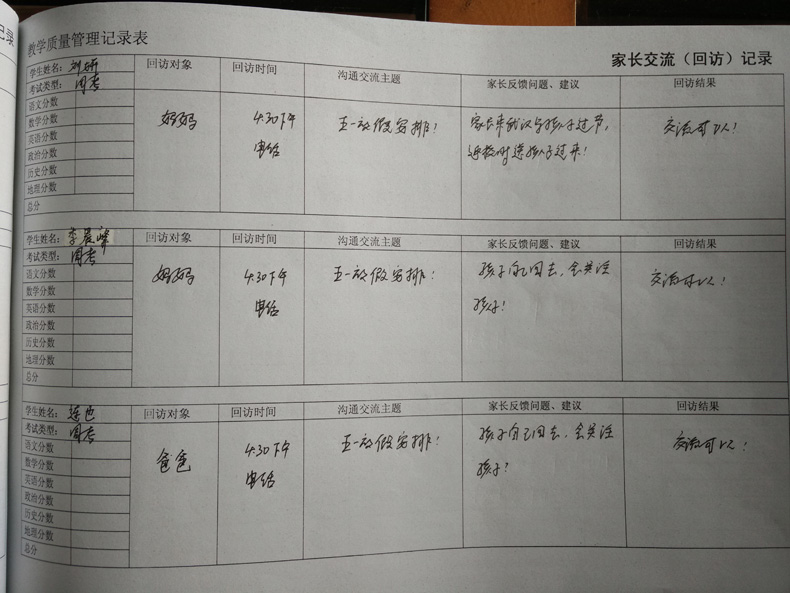 记录
教学质量管理记录表
家长交流（回访）记录
学生姓名： 刘妍 回访对象 回访时间 沟通交流主题 家长反馈问题、建议 回访结果
考试类型： 周考
语文分数
数学分数
英语分数
政治分数
历史分数
地理分数
总分
妈妈 4.30下午 五一放假安排！ 家长来武汉与孩子过节， 交流可以！
电话 返校时送孩子过来！
学生姓名： 李晨 回访对象 回访时间 沟通交流主题 家长反馈问题、建议 回访结果
考试类型： 周考
语文分数
数学分数
英语分数
政治分数
历史分数
地理分数
总分
妈妈 4.30下午 五一放假安排！ 孩子自己回去，会关注 交流可以！
电话 孩子！
学生姓名： 回访对象 回访时间 沟通交流主题 家长反馈问题、建议 回访结果
考试类型： 周考
语文分数
数学分数
英语分数
政治分数
历史分数
地理分数
总分
爸爸 4.30下午 五一放假安排！ 孩子自己回去，会关注 交流可以！
电话 孩子？